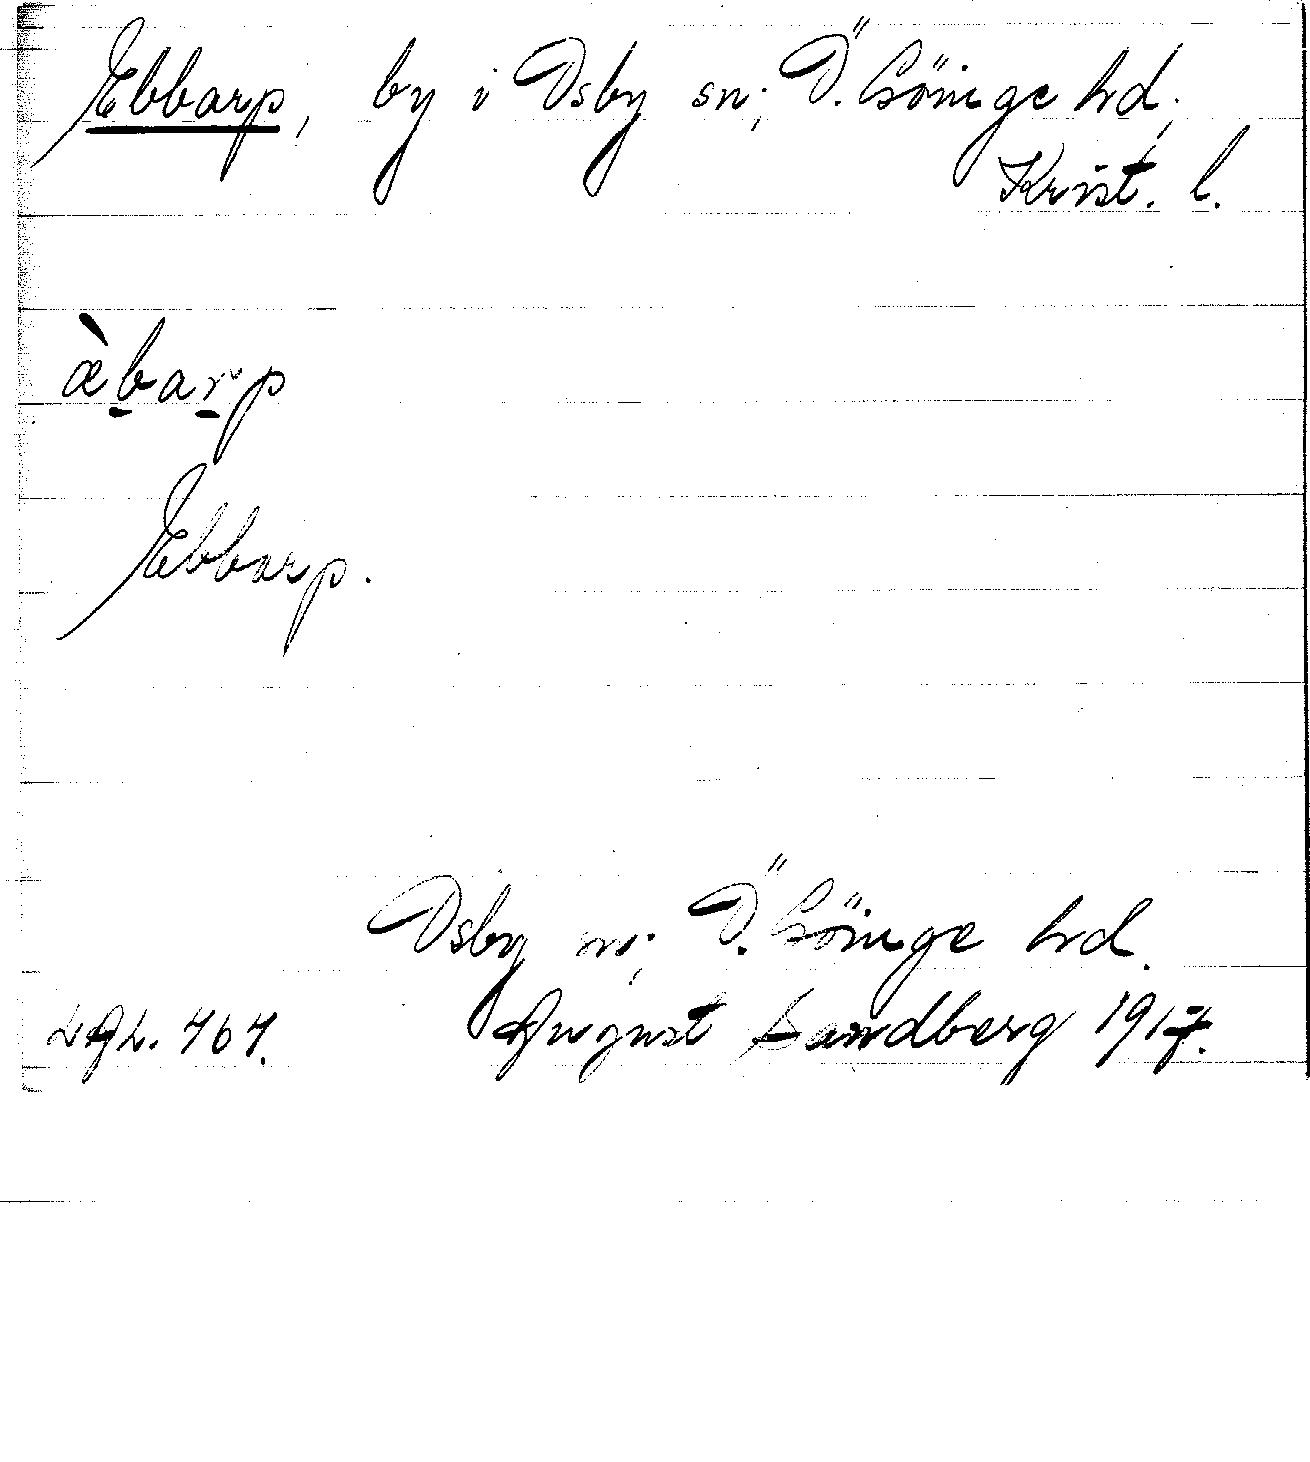 Ebbarp, by i Osby sn; Ö. Göinge hd;
Krist. l.
æ̀barp
Ebbarp.
Osby sn; Ö. Göinge hd.
August Sandberg 1917.